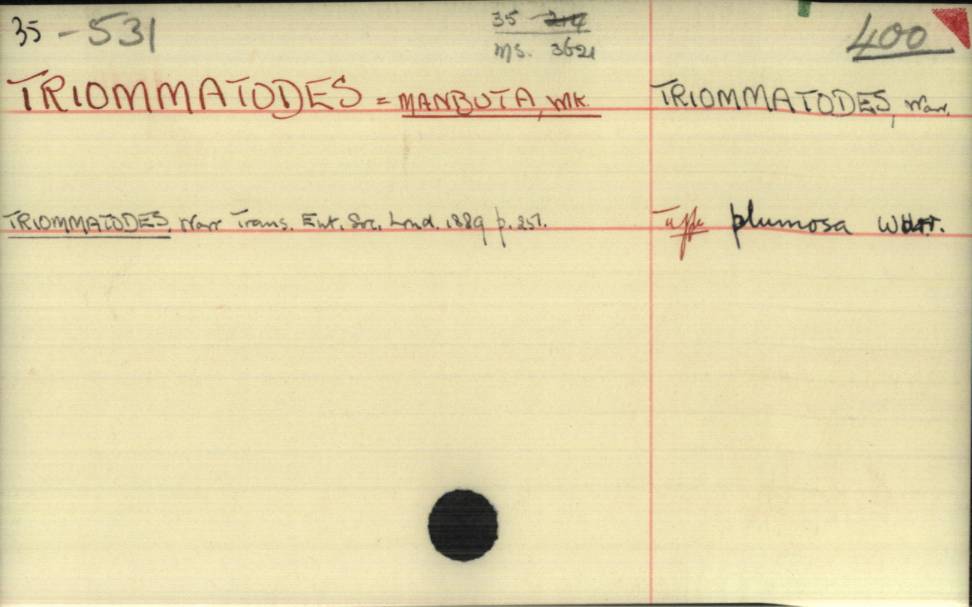 35 - 531
35 - 214
ms. 3621
400
TRIOMMATODES = MANBUTA, WK.
TRIOMMATODES, Warr.
TRIOMMATODES, Warr Trans. Ent. Soc. Lond. 1889 p. 251.
Type plumosa Warr.